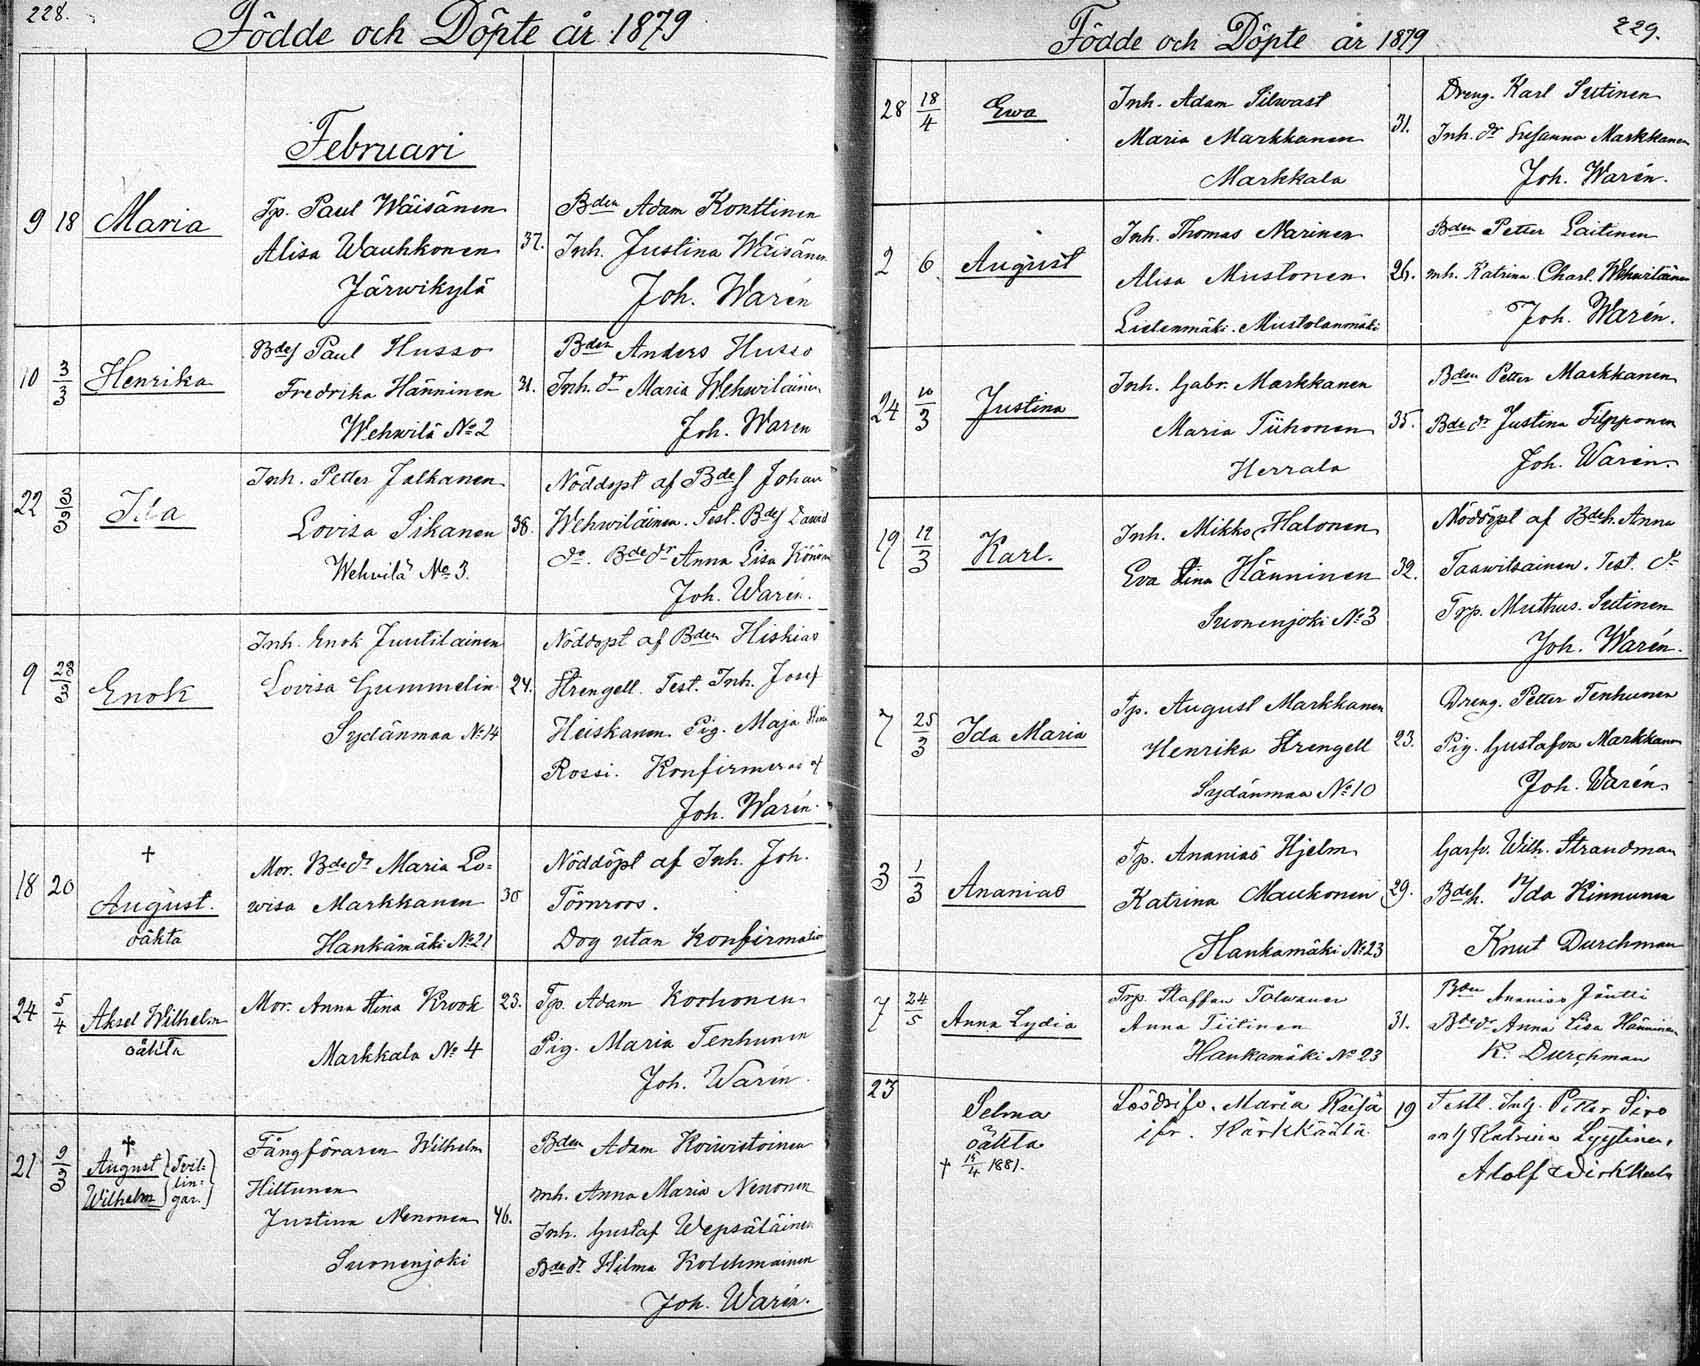 228.
Födde och Döpte år 1879
Februari
9 18 Maria
Tp. Paul Wäisänen
Alisa Wauhkonen 37.
Järwikylä
Bden Adam Konttinen
Inh. Justina Wäisänen
Joh. Warén
10 3/3 Henrika
Bdes Paul Husso
Fredrika Hänninen 31.
Wehwilä No 2
Bden Anders Husso
Inh. dr Maria Wehwiläinen
Joh. Waren
22 3/3 Ida
Inh. Petter Jalkanen
Lovisa Sikanen 38.
Wehvilä No 3.
Nöddopt af Bdes Johan
Wehwiläinen. Test. Bdes David
do. Bde dr Anna Lisa
Joh. Warén.
9 23/3 Enok
Inh. Enok Juutilainen
Lovisa Gummelin 24.
Sydänmaa No 14
Nöddopt af Bden Hiskias
Strengell. Test. Inh. Josef
Heiskanen Pig. Maja Stina
Rossi. Konfirmeras af
Joh. Warén.
18 20 † August.
oäkta
Mor. Bde dr Maria Lo=
wisa Markkanen 30
Hankamäki No 21
Nöddöpt af Inh. Joh.
Törnroos.
Dog utan Konfirmation
24 5/4 Aksel Wilhelm
oäkta
Mor. Anna Stina Krook 23.
Markkala No 4
Tp. Adam Korhonen
Pig. Maria Tenhunen
Joh. Warén.
21 9/3 †
August } Tvil=
lin=
Wilhelm } gar. }
Fångföraren Wilhelm
Hiltunen
Justina Nenonen 46.
Suonenjoki
Bden Adam Koiwistoinen
mh. Anna Maria Nenonen
Inh. Gustaf Wepsäläinen
Bde dr Hilma Kolehmainen
Joh. Warén.
Födde och Döpte år 1879
229.
28 18/4 Ewa
Inh. Adam Silwast
Maria Markkanen 31.
Markkala
Dreng. Karl Sutinen
Inh. dr Susanna Markkanen
Joh. Warén.
2 6 August
Inh. Thomas Narinen
Alisa Mustonen 26.
Lielenmäki. Mustolanmäki
Bden Petter Laitinen
mh. Katrina Charl. Wehwiläinen
Joh. Warén.
24 10/3 Justina
Inh. Gabr. Markkanen
Maria Tiihonen 35.
Herrala
Bden Petter Markkanen
Bde dr Justina Filpponen
Joh. Warén.
19 12/3 Karl.
Inh. Mikko Halonen
Eva Stina Hänninen 32.
Suonenjoki No 3
Nöddöpt af Bdeh. Anna
Taawitsainen. Test. dr
Torp. Mathus. Sutinen
Joh. Warén.
7 25/3 Ida Maria
Tp. August Markkanen
Henrika Strengell 23.
Sydänmaa No 10
Dreng. Petter Tenhunen
Pig. Gustafva Markkanen
Joh. Warén.
3 1/3 Ananias
Tp. Ananias Hjelm
Katrina Maukonen 29.
Hankamäki No 23
Garfv. Wilh. Strandman
Bdeh. Ida Kinnunen
Knut Durchman
7 24/5 Anna Lydia
Torp. Staffan Tolwanen
Anna Tiitinen 31.
Hankamäki No 23
Bden Ananias Jäntti
Bde dr Anna Lisa Hänninen
K. Durchman
23 Selma
oäkta
† 15/4 1881.
Lösdrifv. Maria Räisä 19
ifr. Kärkkäälä
Testl. Inh. Petter Siro
Katrina Lyytinen.
Adolf